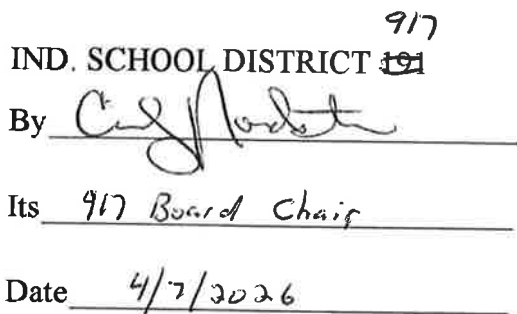 917
IND. SCHOOL DISTRICT 191
By
Its 917 Board Chair
Date 4/7/2026